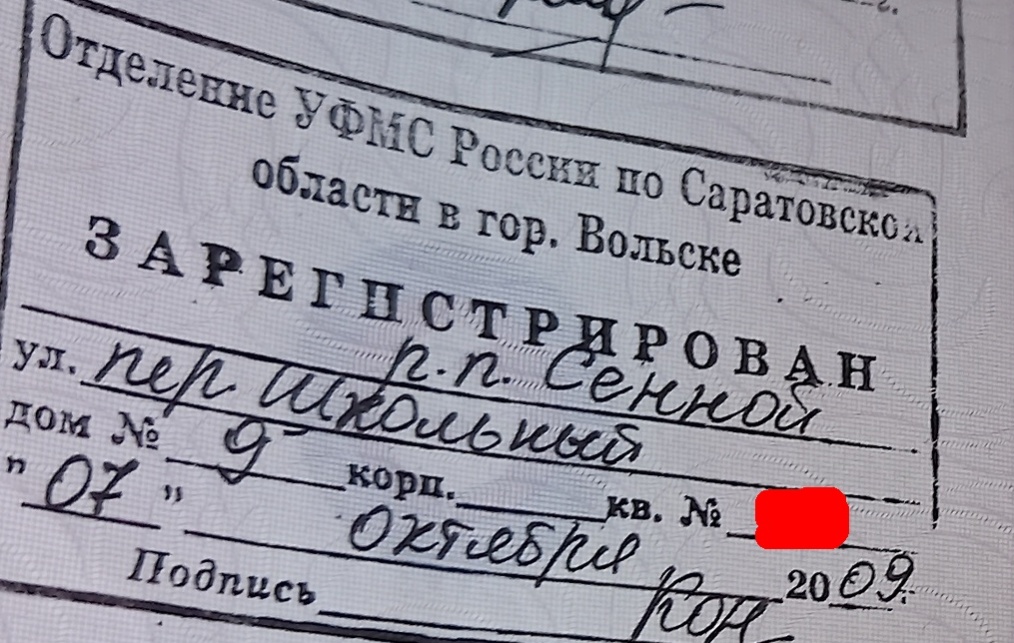 Отделение УФМС России по Саратовской
области в гор. Вольске
ЗАРЕГИСТРИРОВАН
р.п. Сенной
ул. пер Школьный
дом № 9 корп. кв. №
"07" октября 2009г.
Подпись